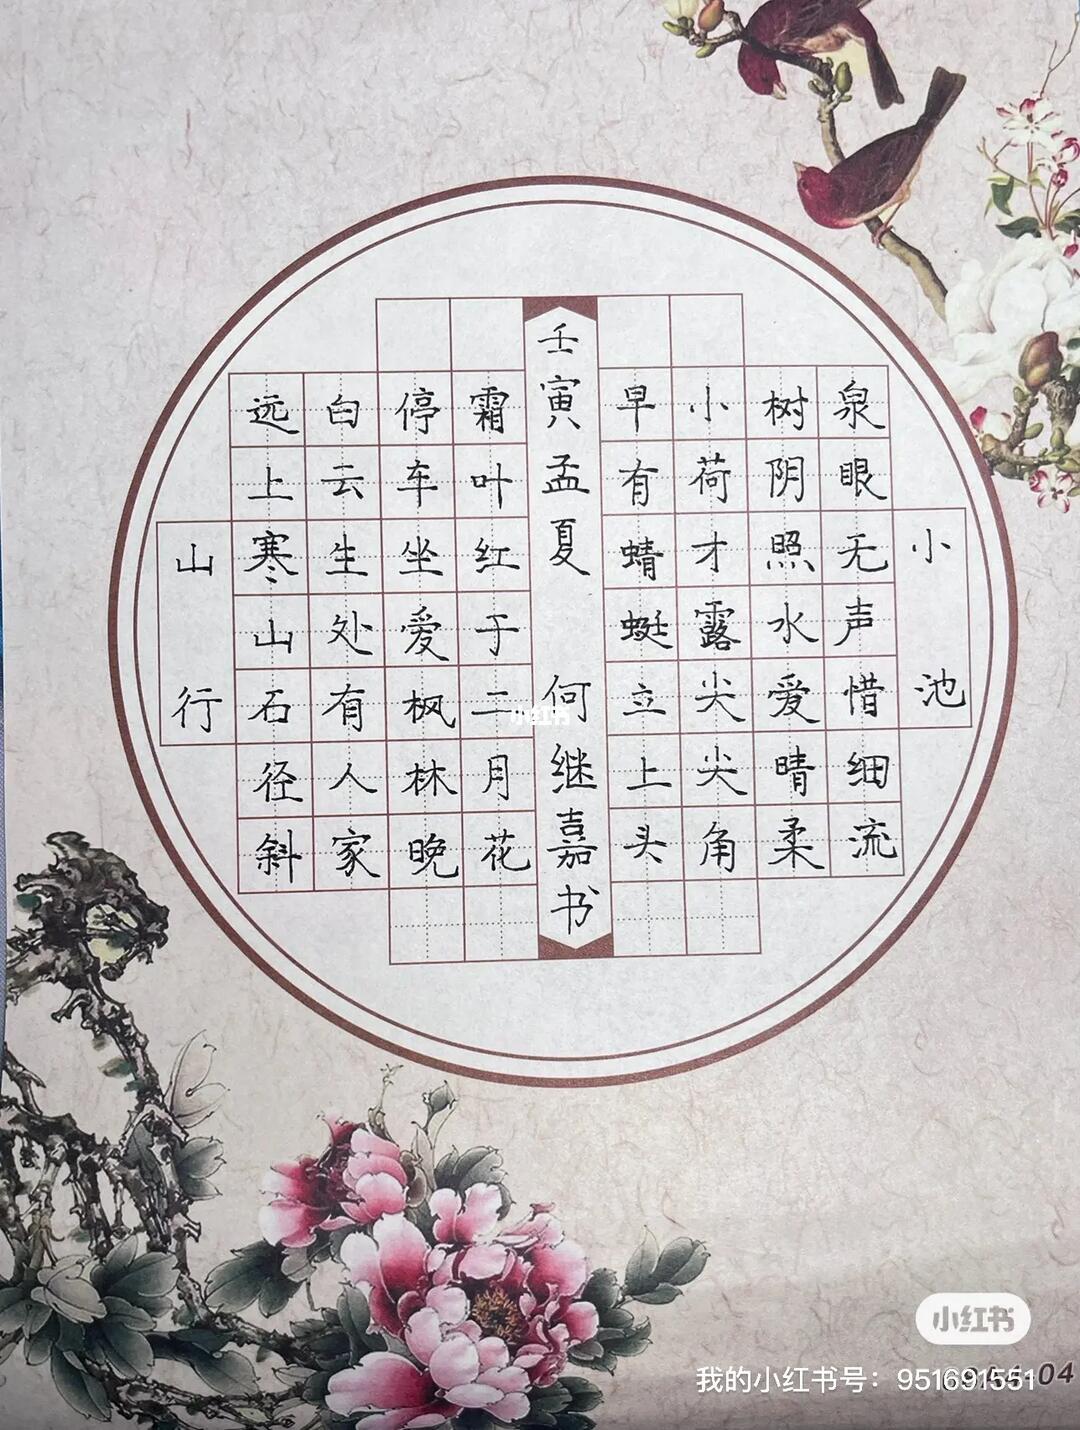 小池
泉眼无声惜细流
树阴照水爱晴柔
小荷才露尖尖角
早有蜻蜓立上头
山行
远上寒山石径斜
白云生处有人家
停车坐爱枫林晚
霜叶红于二月花
壬寅孟夏 何继嘉书
小红书
小红书
我的小红书号：951691551